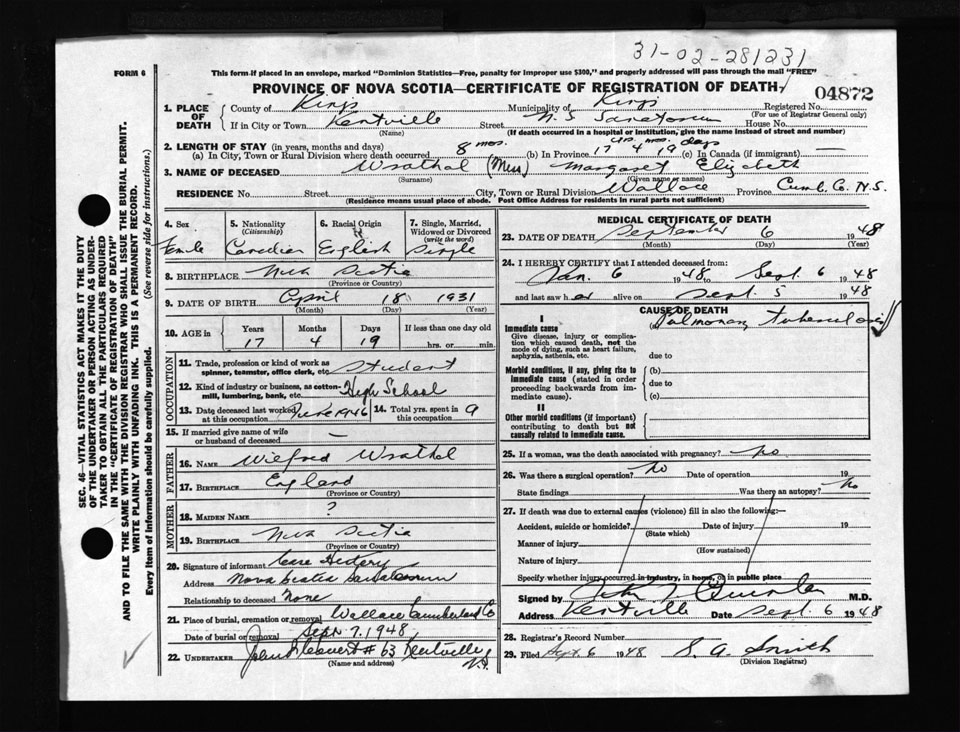 31-02-281231
FORM 6
This form if placed in an envelope, marked "Dominion Statistics—Free, penalty for improper use $300," and properly addressed will pass through the mail "FREE"
PROVINCE OF NOVA SCOTIA—CERTIFICATE OF REGISTRATION OF DEATH
04872
1. PLACE OF DEATH
County of Kings Municipality of Kings Registered No.
(For use of Registrar General only)
If in City or Town Kentville Street N. S Sanatorium House No.
(Name) (If death occurred in a hospital or institution, give the name instead of street and number)
2. LENGTH OF STAY (in years, months and days)
(a) In City, Town or Rural Division where death occurred 8 mos. (b) In Province 17 yrs. 4 mos. 19 days (c) In Canada (if immigrant) —
3. NAME OF DECEASED Wrathal (Miss) Margaret Elizabeth
(Surname) (Given name or names)
RESIDENCE No. Street City, Town or Rural Division Wallace Province Cumb. Co. N.S.
(Residence means usual place of abode. Post Office Address for residents in rural parts not sufficient)
4. Sex 5. Nationality (Citizenship) 6. Racial Origin 7. Single, Married, Widowed or Divorced (write the word)
Female Canadian English Single
8. BIRTHPLACE Nova Scotia
(Province or Country)
9. DATE OF BIRTH April 18 1931
(Month) (Day) (Year)
10. AGE in Years Months Days If less than one day old
17 4 19 hrs. or min.
OCCUPATION
11. Trade, profession or kind of work as spinner, teamster, office clerk, etc. Student
12. Kind of industry or business, as cotton-mill, lumbering, bank, etc. High School
13. Date deceased last worked at this occupation June 1946 14. Total yrs. spent in 9
15. If married give name of wife or husband of deceased —
FATHER
16. NAME Wilfred Wrathal
17. BIRTHPLACE England
(Province or Country)
MOTHER
18. MAIDEN NAME ?
19. BIRTHPLACE Nova Scotia
(Province or Country)
20. Signature of informant Case History
Address Nova Scotia Sanatorium
Relationship to deceased None
21. Place of burial, cremation or removal Wallace Cumberland Co
Date of burial or removal Sept 7. 1948
22. UNDERTAKER # 63 Kentville N.S.
(Name and address)
MEDICAL CERTIFICATE OF DEATH
23. DATE OF DEATH September 6 1948
(Month) (Day) (Year)
24. I HEREBY CERTIFY that I attended deceased from:
Jan. 6 1948 to Sept. 6 1948
and last saw her alive on Sept. 5 1948
CAUSE OF DEATH
I
Immediate cause Pulmonary tuberculosis
Give disease, injury or complication which caused death, not the mode of dying, such as heart failure, asphyxia, asthenia, etc.
due to
Morbid conditions, if any, giving rise to immediate cause (stated in order proceeding backwards from immediate cause).
(b)
due to
(c)
II
Other morbid conditions (if important) contributing to death but not causally related to immediate cause.
25. If a woman, was the death associated with pregnancy? no
26. Was there a surgical operation? no Date of operation 19
State findings Was there an autopsy? no
27. If death was due to external causes (violence) fill in also the following:—
Accident, suicide or homicide? Date of injury 19
(State which)
Manner of injury
(How sustained)
Nature of injury
Specify whether injury occurred in industry, in home, or in public place
Signed by M.D.
Address Kentville Date Sept. 6 1948
28. Registrar's Record Number
29. Filed Sept. 6 1948 S. A. Smith
(Division Registrar)
SEC. 46—VITAL STATISTICS ACT MAKES IT THE DUTY
OF THE UNDERTAKER OR PERSON ACTING AS UNDER-
TAKER TO OBTAIN ALL THE PARTICULARS REQUIRED
IN THE "CERTIFICATE OF REGISTRATION OF DEATH"
AND TO FILE THE SAME WITH THE DIVISION REGISTRAR WHO SHALL ISSUE THE BURIAL PERMIT.
WRITE PLAINLY WITH UNFADING INK. THIS IS A PERMANENT RECORD.
Every item of information should be carefully supplied. (See reverse side for instructions.)